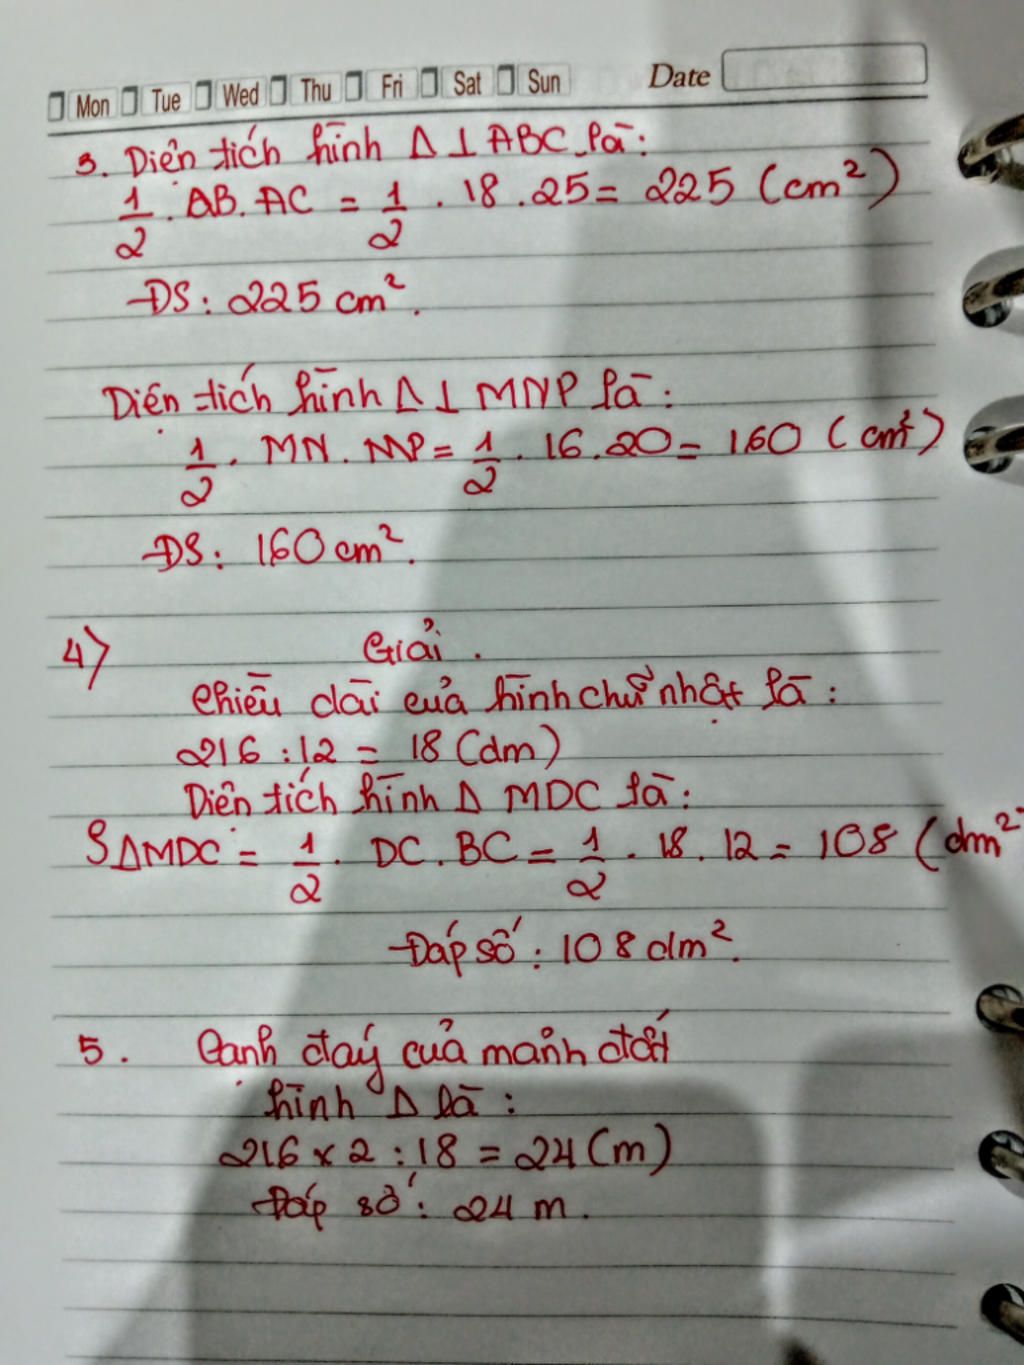 Mon Tue Wed Thu Fri Sat Sun Date
3. Diện tích hình Δ⊥ABC là:
1/2 . AB. AC = 1/2 . 18 . 25 = 225 (cm²)
ĐS: 225 cm².
Diện tích hình Δ⊥ MNP là:
1/2 . MN. MP = 1/2 . 16 . 20 = 160 (cm²)
ĐS: 160 cm².
4) Giải.
Chiều dài của hình chữ nhật là:
216 : 12 = 18 (dm)
Diện tích hình Δ MDC là:
SΔMDC = 1/2 . DC. BC = 1/2 . 18 . 12 = 108 (dm²)
Đáp số: 108 dm².
5. Cạnh đáy của mảnh đất
hình Δ là:
216 x 2 : 18 = 24 (m)
Đáp số: 24 m.